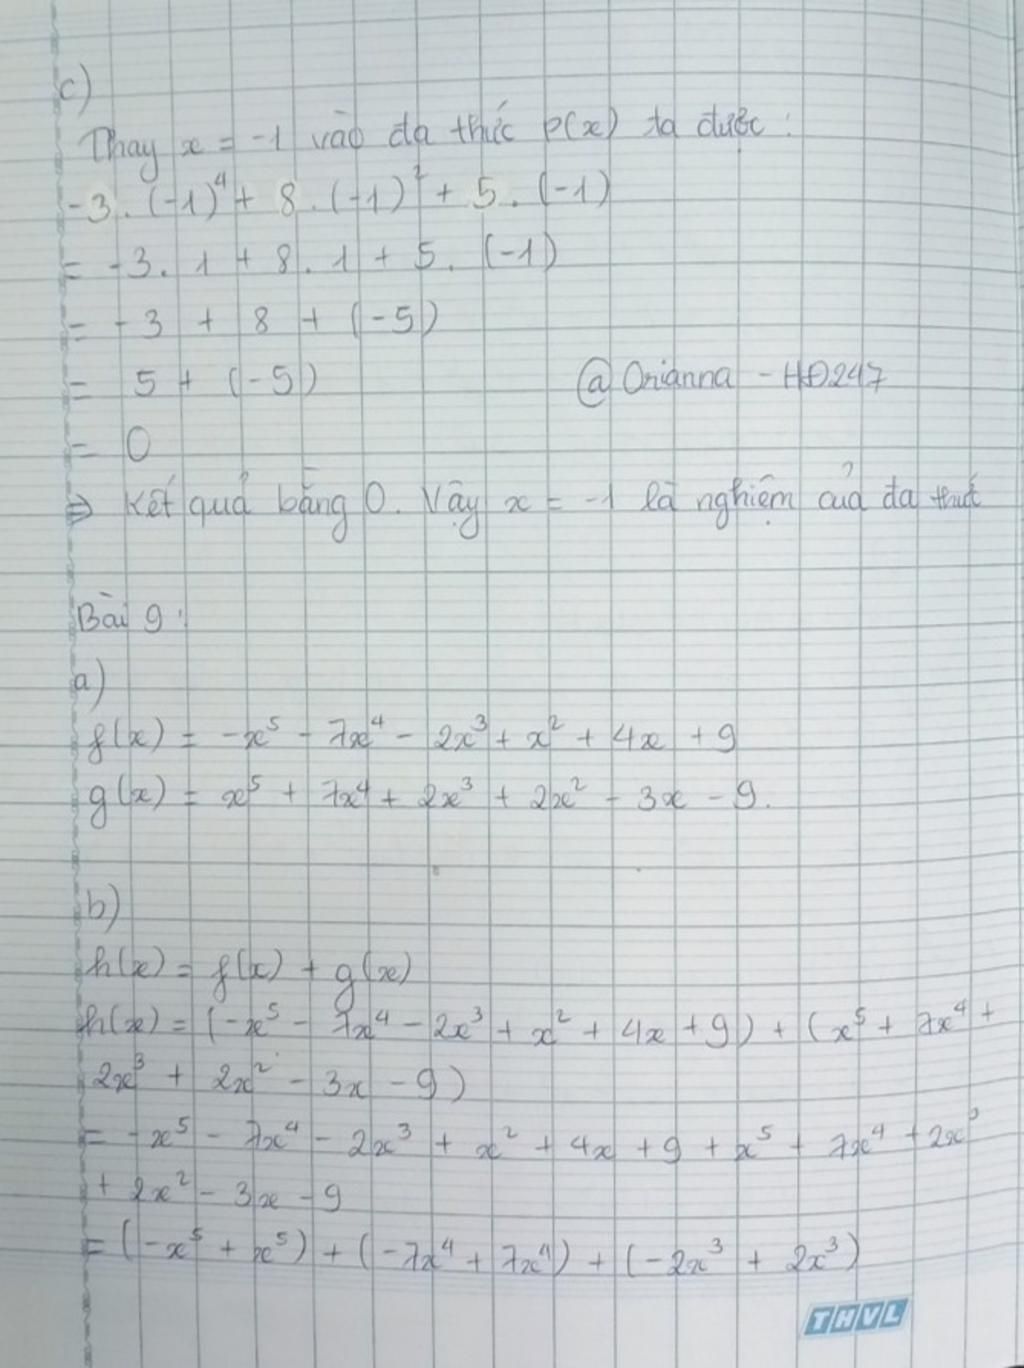 c)
Thay x = -1 vào đa thức P(x) ta được :
-3 . (-1)⁴ + 8 . (-1)² + 5 . (-1)
= -3 . 1 + 8 . 1 + 5 . (-1)
= -3 + 8 + (-5)
= 5 + (-5)
@Orianna - HĐ247
= 0
⇒ Kết quả bằng 0. Vậy x = -1 là nghiệm của đa thức
Bài 9 :
a)
f(x) = -x⁵ - 7x⁴ - 2x³ + x² + 4x + 9
g(x) = x⁵ + 7x⁴ + 2x³ + 2x² - 3x - 9.
b)
h(x) = f(x) + g(x)
h(x) = (-x⁵ - 7x⁴ - 2x³ + x² + 4x + 9) + (x⁵ + 7x⁴ +
2x³ + 2x² - 3x - 9)
= -x⁵ - 7x⁴ - 2x³ + x² + 4x + 9 + x⁵ + 7x⁴ + 2x³
+ 2x² - 3x - 9
= (-x⁵ + x⁵) + (-7x⁴ + 7x⁴) + (-2x³ + 2x³)
THVL